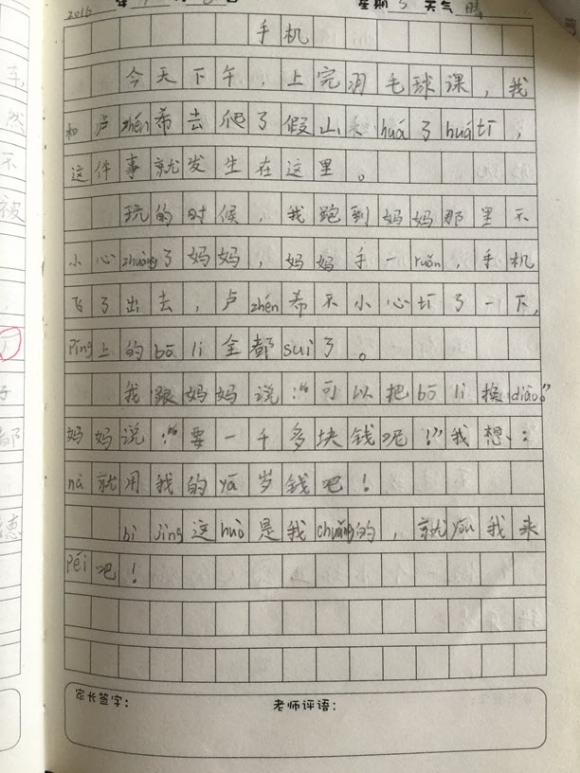 2016 年 星期 5 天气 晴
手机
今天下午，上完羽毛球课，我
和卢zhén希去爬了假山 huá了huátī，
这件事就发生在这里。
玩的时候，我跑到妈妈那里不
小心zhuàng了妈妈，妈妈手一ruǎn，手机
飞了出去，卢zhén希不小心tī了一下，
Píng上的bō li全都suì了。
我跟妈妈说：“可以把bō li换diào。”
妈妈说：“要一千多块钱呢！”我想：
nà就用我的yā岁钱吧！
bì jìng这huò是我chuǎng的，就yóu我来
Péi吧！
家长签字：
老师评语：